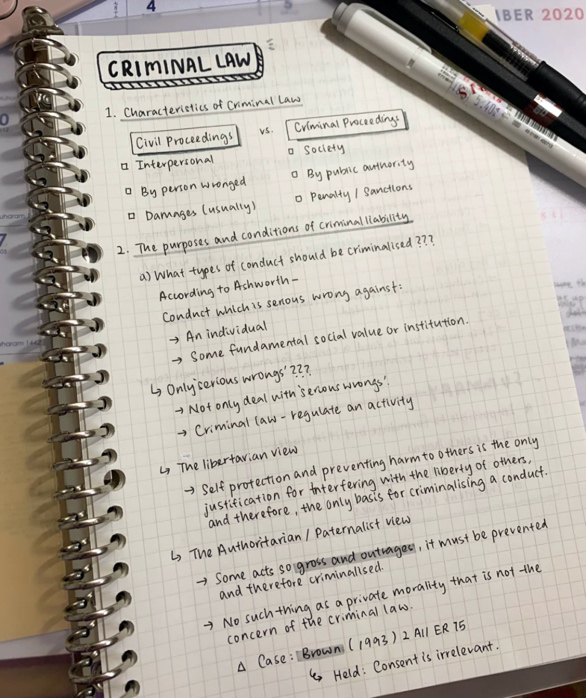 4
5
BER 2020
CRIMINAL LAW
1. Characteristics of Criminal Law
Civil Proceedings vs. Criminal Proceedings
Interpersonal
Society
By person wronged
By public authority
Damages (usually)
Penalty / Sanctions
2. The purposes and conditions of criminal liability
a) What types of conduct should be criminalised ???
According to Ashworth –
Conduct which is serious wrong against:
→ An individual
→ Some fundamental social value or institution.
↳ Only 'serious wrongs' ???
→ Not only deal with 'serious wrongs'.
→ Criminal law – regulate an activity
↳ The libertarian view
→ Self protection and preventing harm to others is the only
justification for interfering with the liberty of others,
and therefore, the only basis for criminalising a conduct.
↳ The Authoritarian / Paternalist view
→ Some acts so gross and outrages, it must be prevented
and therefore criminalised.
→ No such thing as a private morality that is not the
concern of the criminal law.
Δ Case: Brown (1993) 2 All ER 75
↳ Held: Consent is irrelevant.